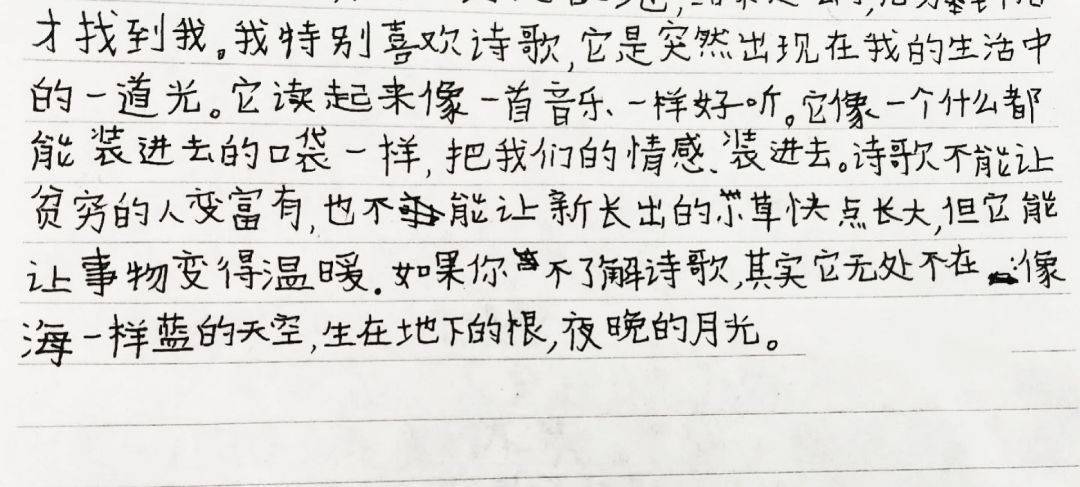 才找到我。我特别喜欢诗歌,它是突然出现在我的生活中
的一道光。它读起来像一首音乐、一样好听。它像一个什么都
能装进去的口袋一样,把我们的情感、装进去。诗歌不能让
贫穷的人变富有,也不能让新长出的小草快点长大,但它能
让事物变得温暖.如果你不了解诗歌,其实它无处不在 像
海一样蓝的天空,生在地下的根,夜晚的月光。